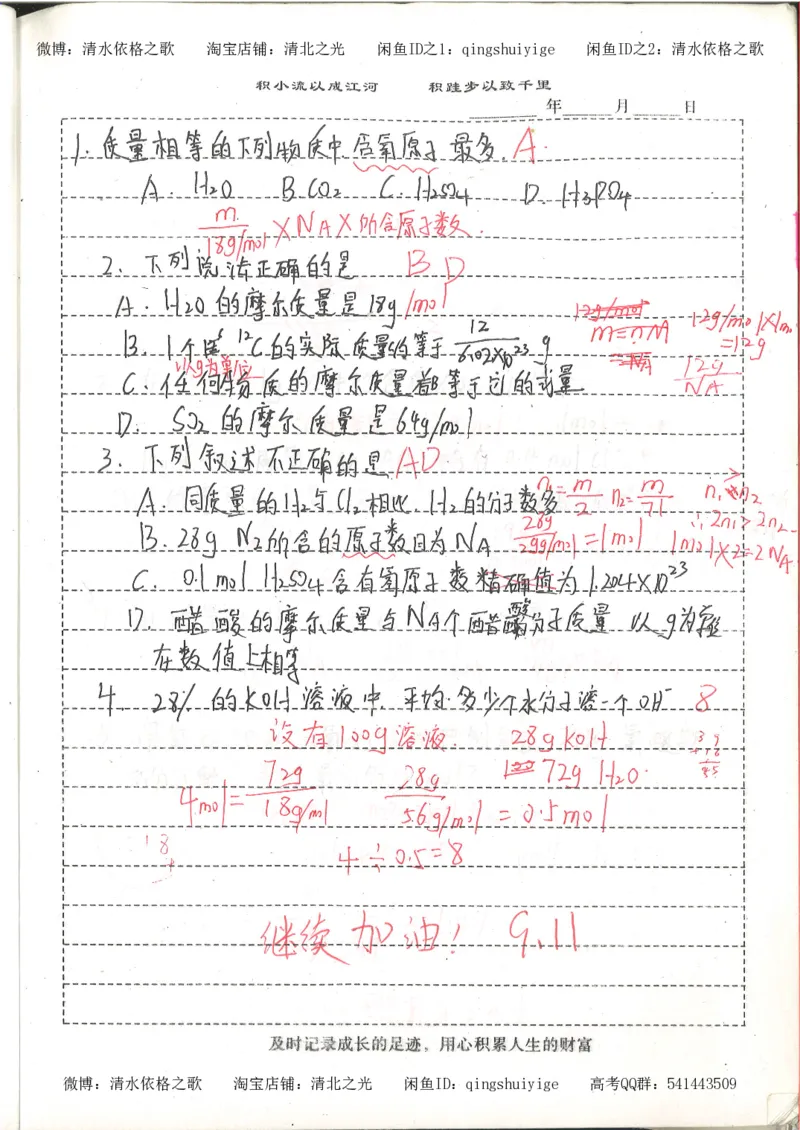 微博：清水依格之歌 淘宝店铺：清北之光 闲鱼ID之1：qingshuiyige 闲鱼ID之2：清水依格之歌
积小流以成江河 积跬步以致千里
年 月 日
1. 质量相等的下列物质中含氧原子最多. A.
A. H2O B. CO2 C. H2SO4 D. H3PO4
m/18g/mol × NA × 所含原子数.
2. 下列说法正确的是 BD
A. H2O的摩尔质量是18g/mol
12g/mol×1mol=12g
m=nM
B. 1个 12C的实际质量约等于 12/6.02×10^23 g
12g/NA
以g为单位
C. 任何物质的摩尔质量都等于它的式量
D. SO2的摩尔质量是64g/mol
3. 下列叙述不正确的是 AD
n1=m/2 n2=m/71 n1>n2
A. 同质量的H2与Cl2相比, H2的分子数多
∴2n1>2n2
B. 28g N2所含的原子数目为NA
28g/29g/mol=1mol 1mol×2=2NA
C. 0.1mol H2SO4含有氧原子数精确值为1.204×10^23
D. 醋酸的摩尔质量与NA个醋酸分子质量 以g为
在数值上相等
4. 28% 的KOH溶液中, 平均多少个水分子溶一个OH- 8
设有100g溶液. 28gKOH
72g H2O.
4mol=72g/18g/mol 28g/56g/mol=0.5mol
18
4÷0.5=8
继续加油! 9.11
及时记录成长的足迹，用心积累人生的财富
微博：清水依格之歌 淘宝店铺：清北之光 闲鱼ID：qingshuiyige 高考QQ群：541443509